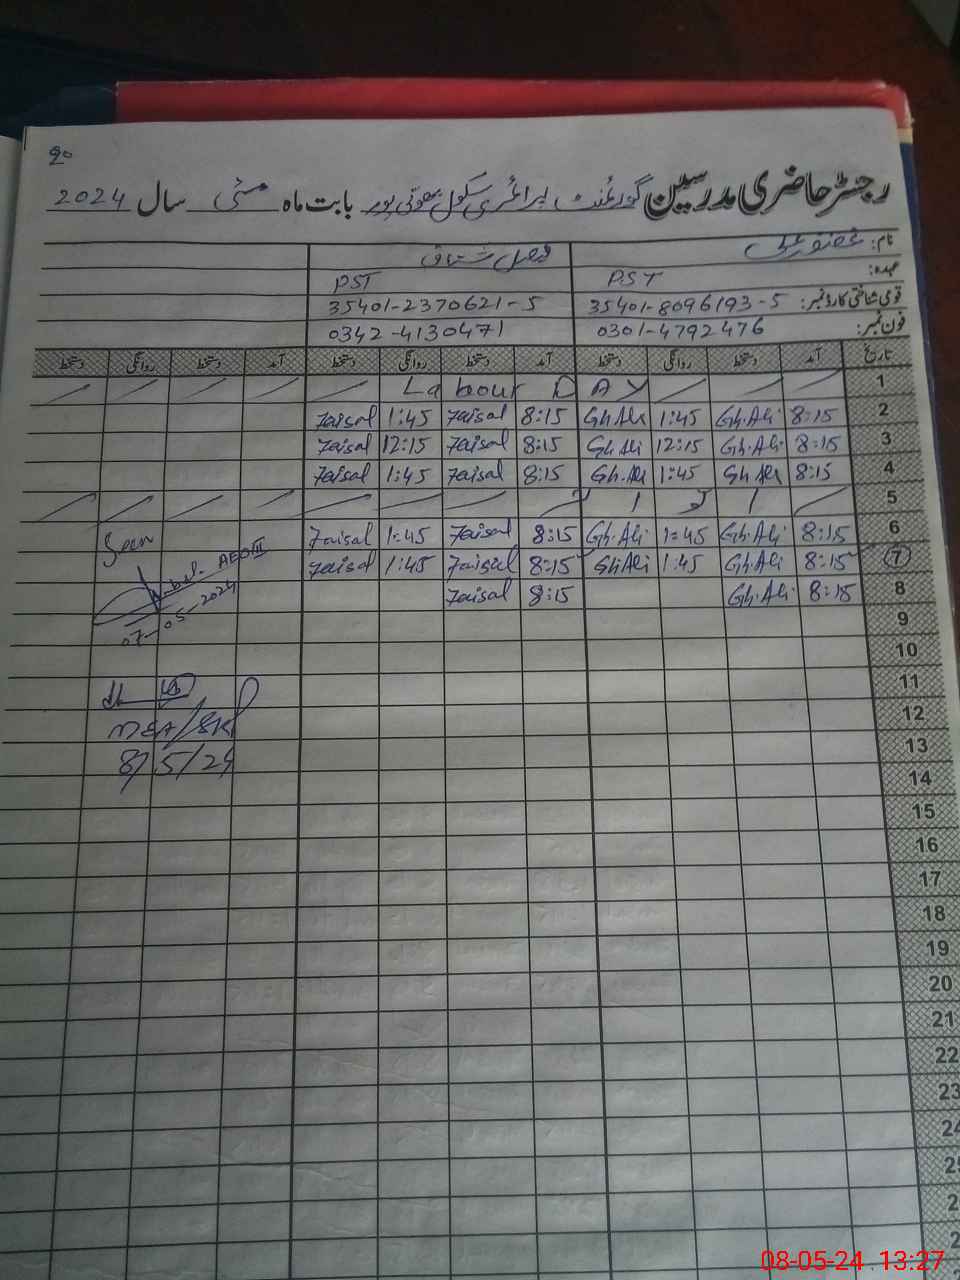 20
رجسٹر حاضری مدرسین گورنمنٹ پرائمری سکول بھوتی پور بابت ماہ مئی سال 2024
نام: غضنفر علی فیصل مشتاق
عہدہ: PST PST
قومی شناختی کارڈ نمبر: 35401-8096193-5 35401-2370621-5
فون نمبر: 0301-4792476 0342-4130471
تاریخ آمد دستخط روانگی دستخط آمد دستخط روانگی دستخط آمد دستخط روانگی دستخط
1 Labour DAY
2 8:15 Gh.Ali 1:45 Gh.Ali 8:15 Faisal 1:45 Faisal
3 8:15 Gh.Ali 12:15 Gh.Ali 8:15 Faisal 12:15 Faisal
4 8:15 Gh.Ali 1:45 Gh.Ali 8:15 Faisal 1:45 Faisal
5
6 8:15 Gh.Ali 1:45 Gh.Ali 8:15 Faisal 1:45 Faisal
7 8:15 Gh.Ali 1:45 Gh.Ali 8:15 Faisal 1:45 Faisal
8 8:15 Gh.Ali 8:15 Faisal
Seen
AEO
07-05-2024
9
10
11
12
MEA/SKP
13
8/5/24
14
15
16
17
18
19
20
21
22
23
24
25
2
2
08-05-24 13:27